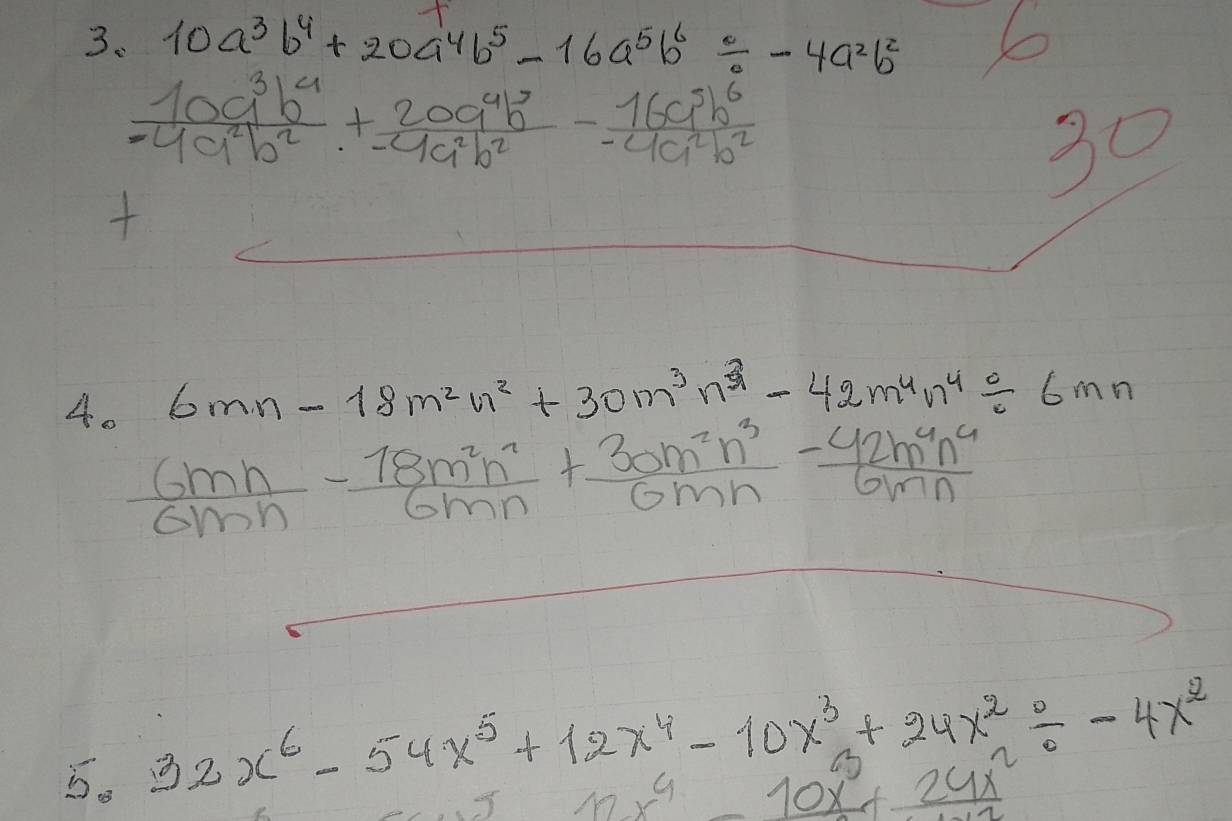 3. 10a³b⁴ + 20a⁴b⁵ - 16a⁵b⁶ ÷ - 4a²b² 6
10a³b⁴/-4a²b² + 20a⁴b⁵/-4a²b² - 16a⁵b⁶/-4a²b² 30
+
4. 6mn - 18m²n² + 30m³n³ - 42m⁴n⁴ ÷ 6mn
6mn/6mn - 18m²n²/6mn + 30m²n³/6mn - 42m⁴n⁴/6mn
5. 32x⁶ - 54x⁵ + 12x⁴ - 10x³ + 24x² ÷ - 4x²
12x⁴ - 10x³ + 24x²